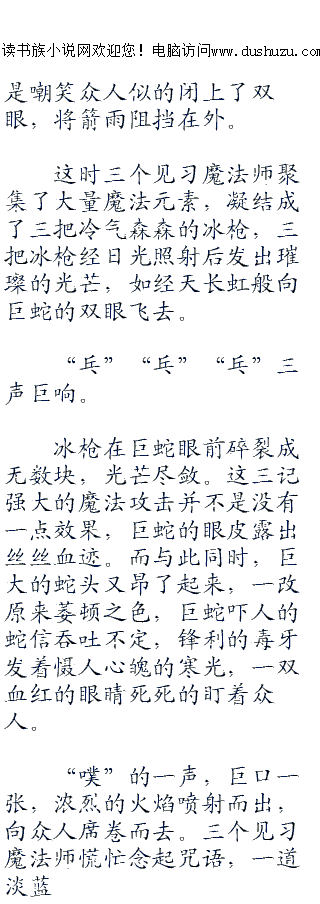 读书族小说网欢迎您！电脑访问www.dushuzu.com
是嘲笑众人似的闭上了双
眼，将箭雨阻挡在外。
这时三个见习魔法师聚
集了大量魔法元素，凝结成
了三把冷气森森的冰枪，三
把冰枪经日光照射后发出璀
璨的光芒，如经天长虹般向
巨蛇的双眼飞去。
“乓”“乓”“乓”三
声巨响。
冰枪在巨蛇眼前碎裂成
无数块，光芒尽敛。这三记
强大的魔法攻击并不是没有
一点效果，巨蛇的眼皮露出
丝丝血迹。而与此同时，巨
大的蛇头又昂了起来，一改
原来萎顿之色，巨蛇吓人的
蛇信吞吐不定，锋利的毒牙
发着慑人心魄的寒光，一双
血红的眼睛死死的盯着众
人。
“噗”的一声，巨口一
张，浓烈的火焰喷射而出，
向众人席卷而去。三个见习
魔法师慌忙念起咒语，一道
淡蓝